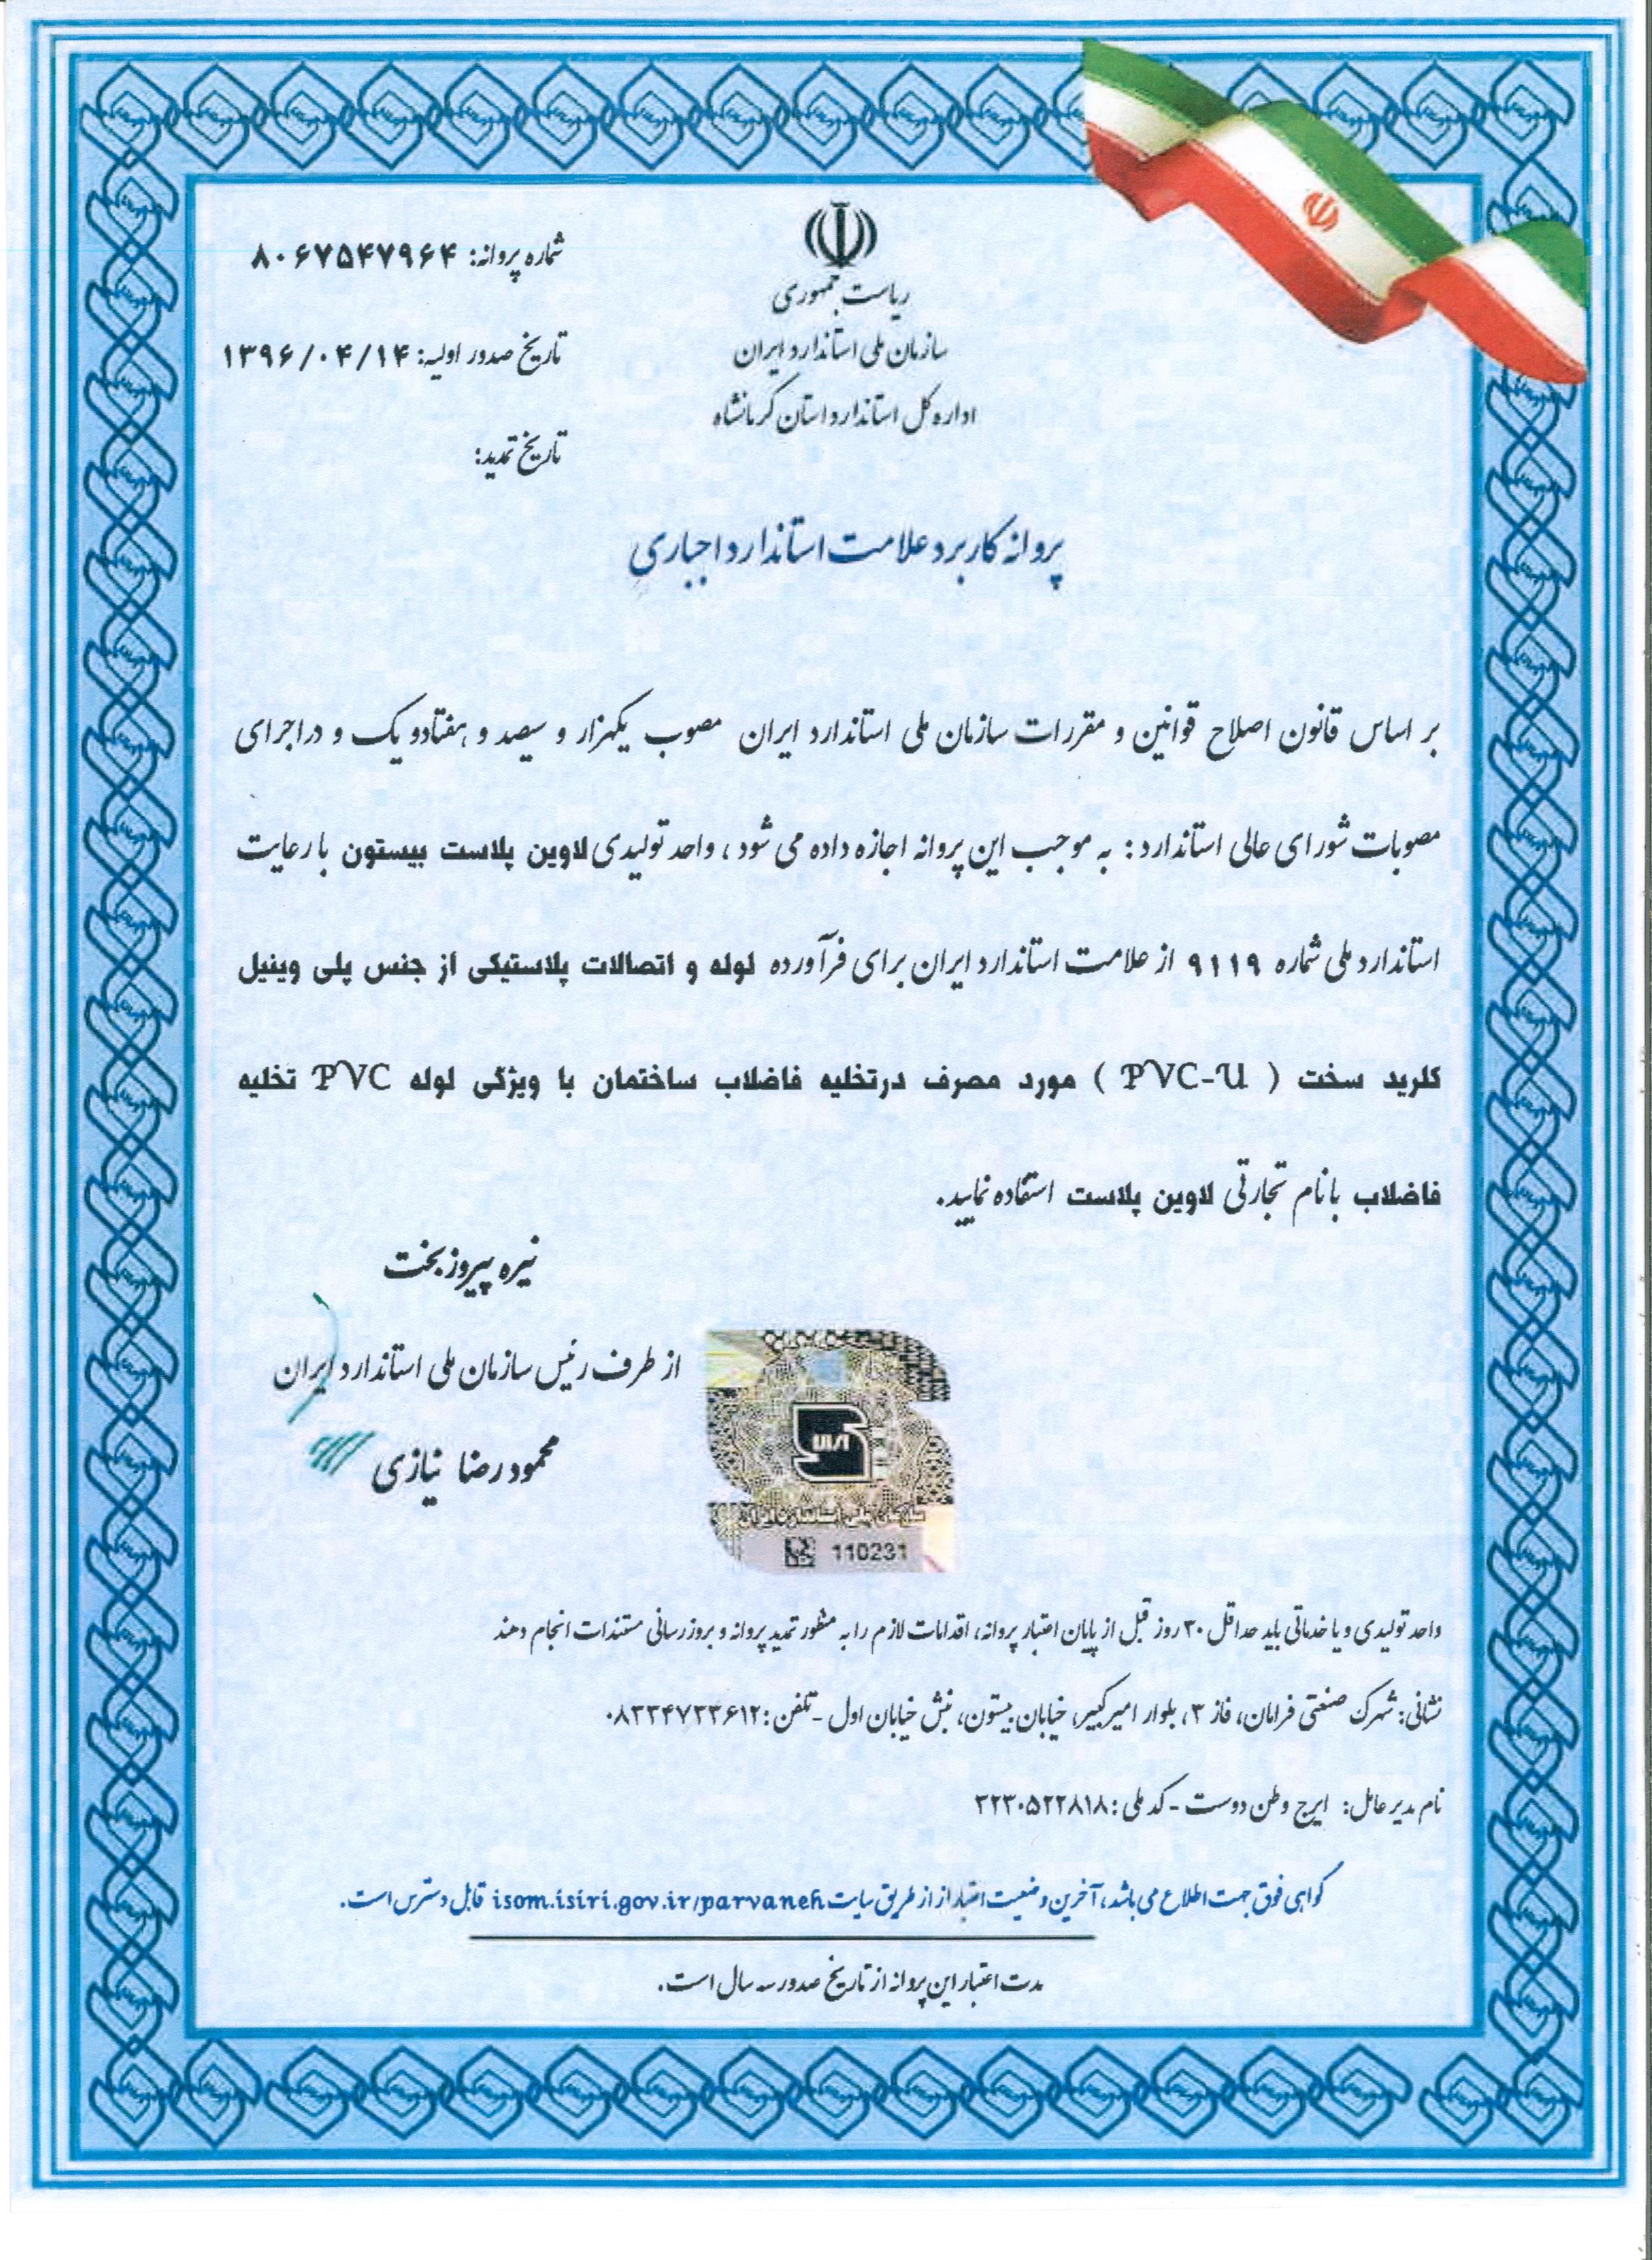 ریاست جمهوری
سازمان ملی استاندارد ایران
اداره کل استاندارد استان کرمانشاه
شماره پروانه: ۸۰۶۷۵۴۷۹۶۴
تاریخ صدور اولیه: ۱۳۹۶/۰۴/۱۴
تاریخ تمدید:
پروانه کاربرد علامت استاندارد اجباری
بر اساس قانون اصلاح قوانین و مقررات سازمان ملی استاندارد ایران مصوب یکهزار و سیصد و هفتادو یک و در اجرای
مصوبات شورای عالی استاندارد: به موجب این پروانه اجازه داده می شود، واحد تولیدی لاوین پلاست بیستون با رعایت
استاندارد ملی شماره ۹۱۱۹ از علامت استاندارد ایران برای فرآورده لوله و اتصالات پلاستیکی از جنس پلی وینیل
کلرید سخت ( PVC-U ) مورد مصرف درتخلیه فاضلاب ساختمان با ویژگی لوله PVC تخلیه
فاضلاب با نام تجارتی لاوین پلاست استفاده نمایید.
نیره پیروزبخت
از طرف رئیس سازمان ملی استاندارد ایران
محمود رضا نیازی
سازمان ملی استاندارد ایران
110231
واحد تولیدی و یا خدماتی باید حداقل ۳۰ روز قبل از پایان اعتبار پروانه، اقدامات لازم را به منظور تمدید پروانه و بروزرسانی مستندات انجام دهند
نشانی: شهرک صنعتی فرامان، فاز ۳، بلوار امیرکبیر، خیابان بیستون، نبش خیابان اول - تلفن: ۰۸۳۳۴۷۳۳۶۱۲
نام مدیر عامل: ایرج وطن دوست - کد ملی: ۳۲۳۰۵۲۲۸۱۸
گواهی فوق جهت اطلاع می باشد، آخرین وضعیت اعتبار از از طریق سایت isom.isiri.gov.ir/parvaneh قابل دسترس است.
مدت اعتبار این پروانه از تاریخ صدور سه سال است.